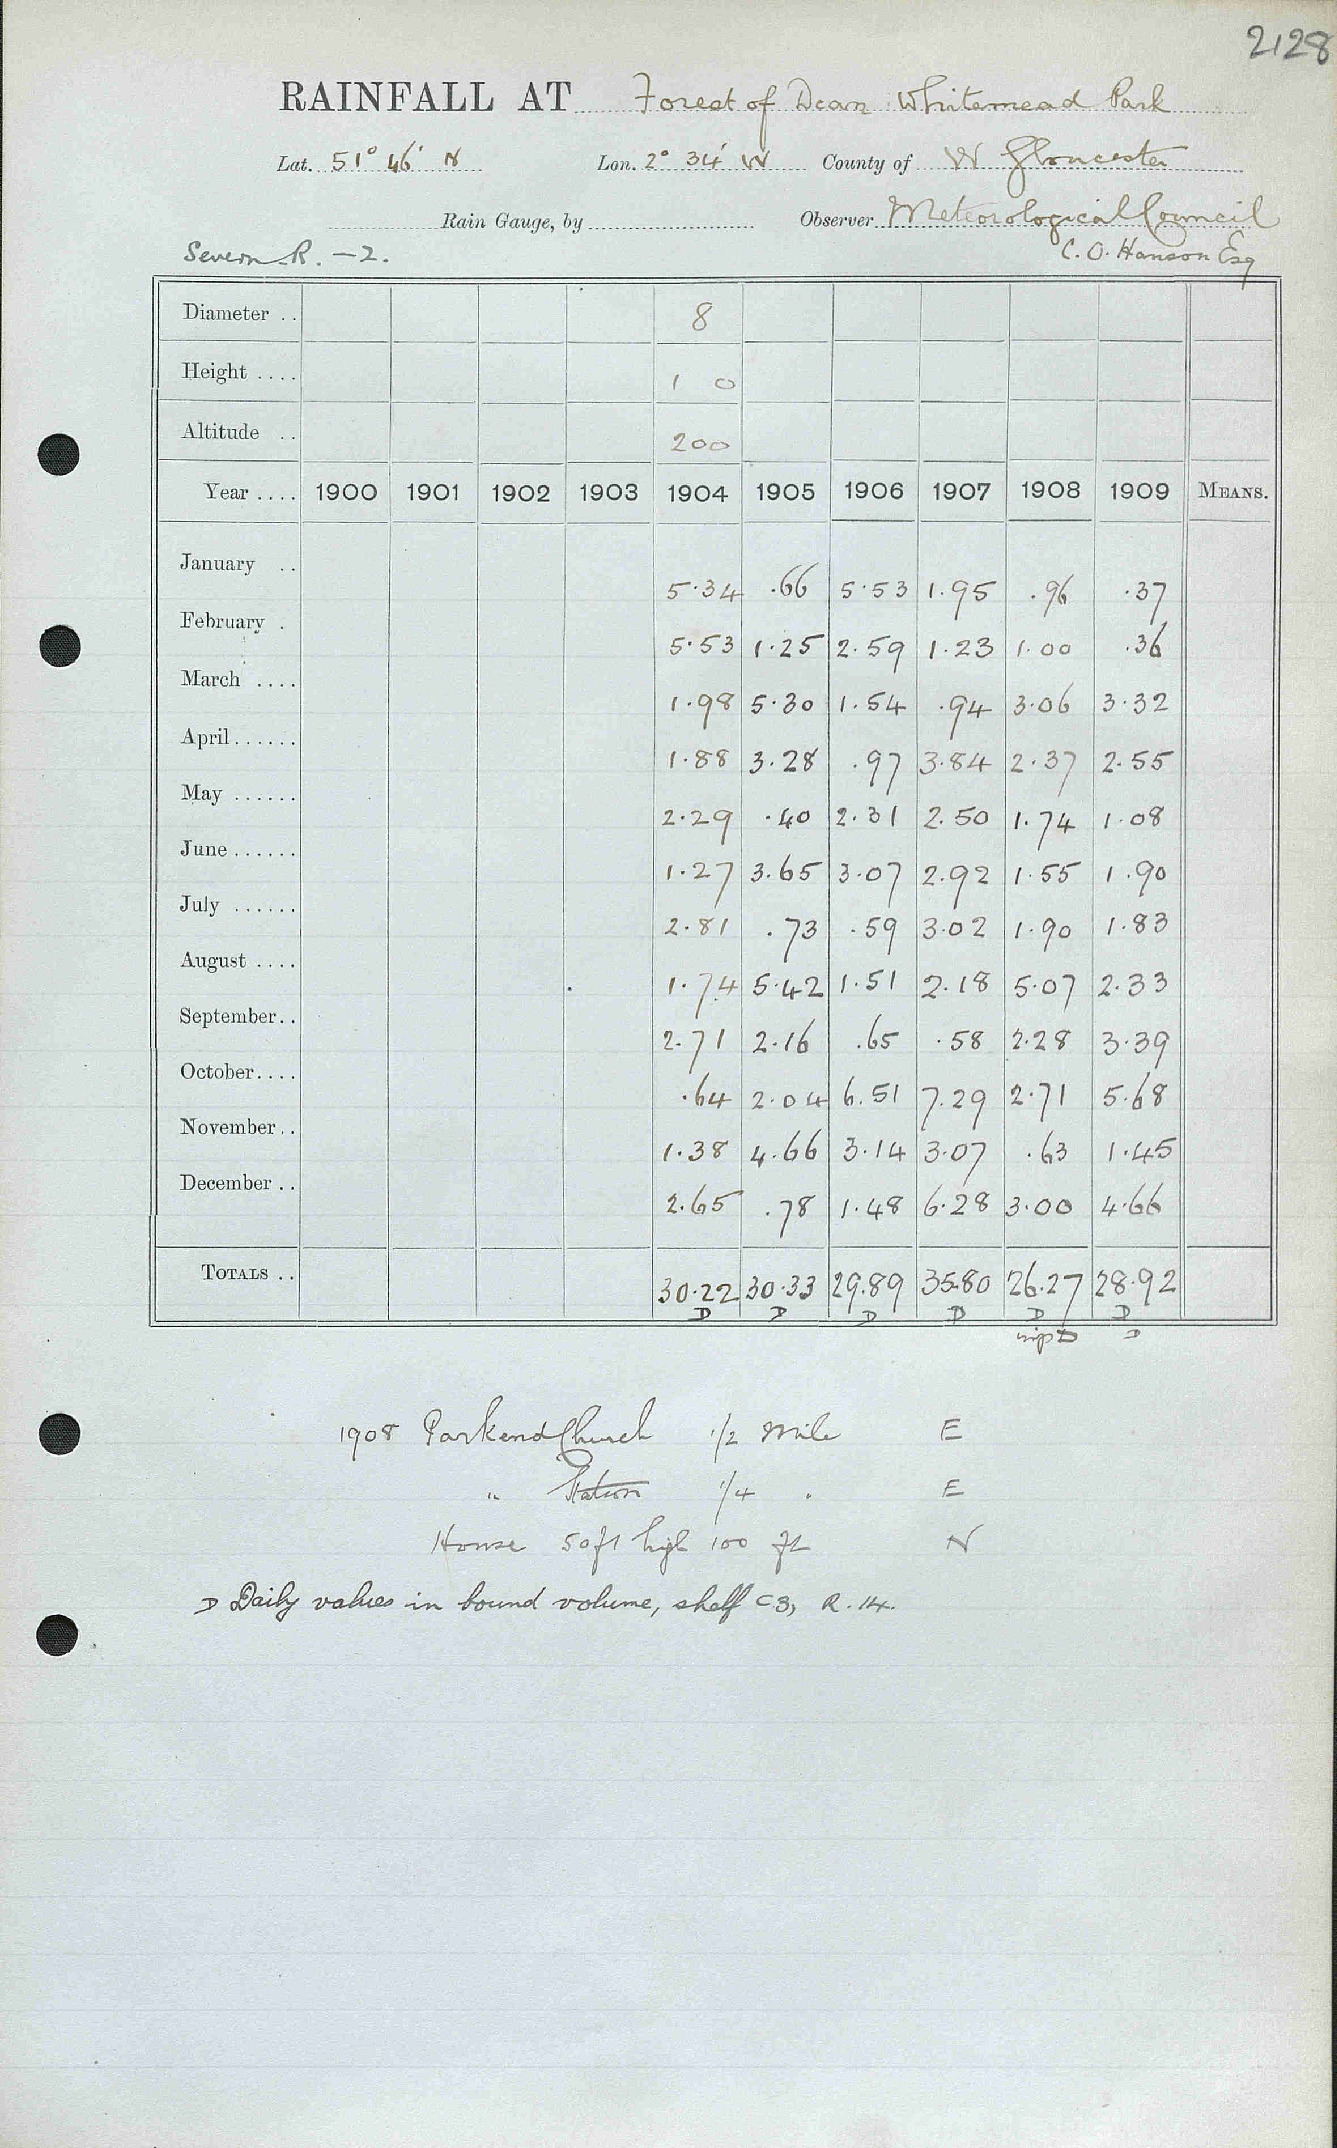 2128
RAINFALL AT Forest of Dean Whitemead Park
Lat. 51° 46' N Lon. 2° 34' W County of W Gloucester
Rain Gauge, by Observer Meteorological Council
Severn R. - 2. C. O. Hanson Esq
Diameter .. 8
Height .... 1 0
Altitude .. 200
Year .... 1900 1901 1902 1903 1904 1905 1906 1907 1908 1909 MEANS.
January ..
5.34 .66 5.53 1.95 .96 .37
February .
5.53 1.25 2.59 1.23 1.00 .36
March ....
1.98 5.30 1.54 .94 3.06 3.32
April ......
1.88 3.28 .97 3.84 2.37 2.55
May ......
2.29 .40 2.31 2.50 1.74 1.08
June ......
1.27 3.65 3.07 2.92 1.55 1.90
July ......
2.81 .73 .59 3.02 1.90 1.83
August ....
1.74 5.42 1.51 2.18 5.07 2.33
September..
2.71 2.16 .65 .58 2.28 3.39
October....
.64 2.04 6.51 7.29 2.71 5.68
November..
1.38 4.66 3.14 3.07 .63 1.45
December ..
2.65 .78 1.48 6.28 3.00 4.66
TOTALS ..
30.22 30.33 29.89 35.80 26.27 28.92
D D D D D D
D D
1908 Parkend Church 1/2 Mile E
" Station 1/4 " E
House 50ft high 100 ft N
D Daily values in bound volume, shelf C3, R.14.